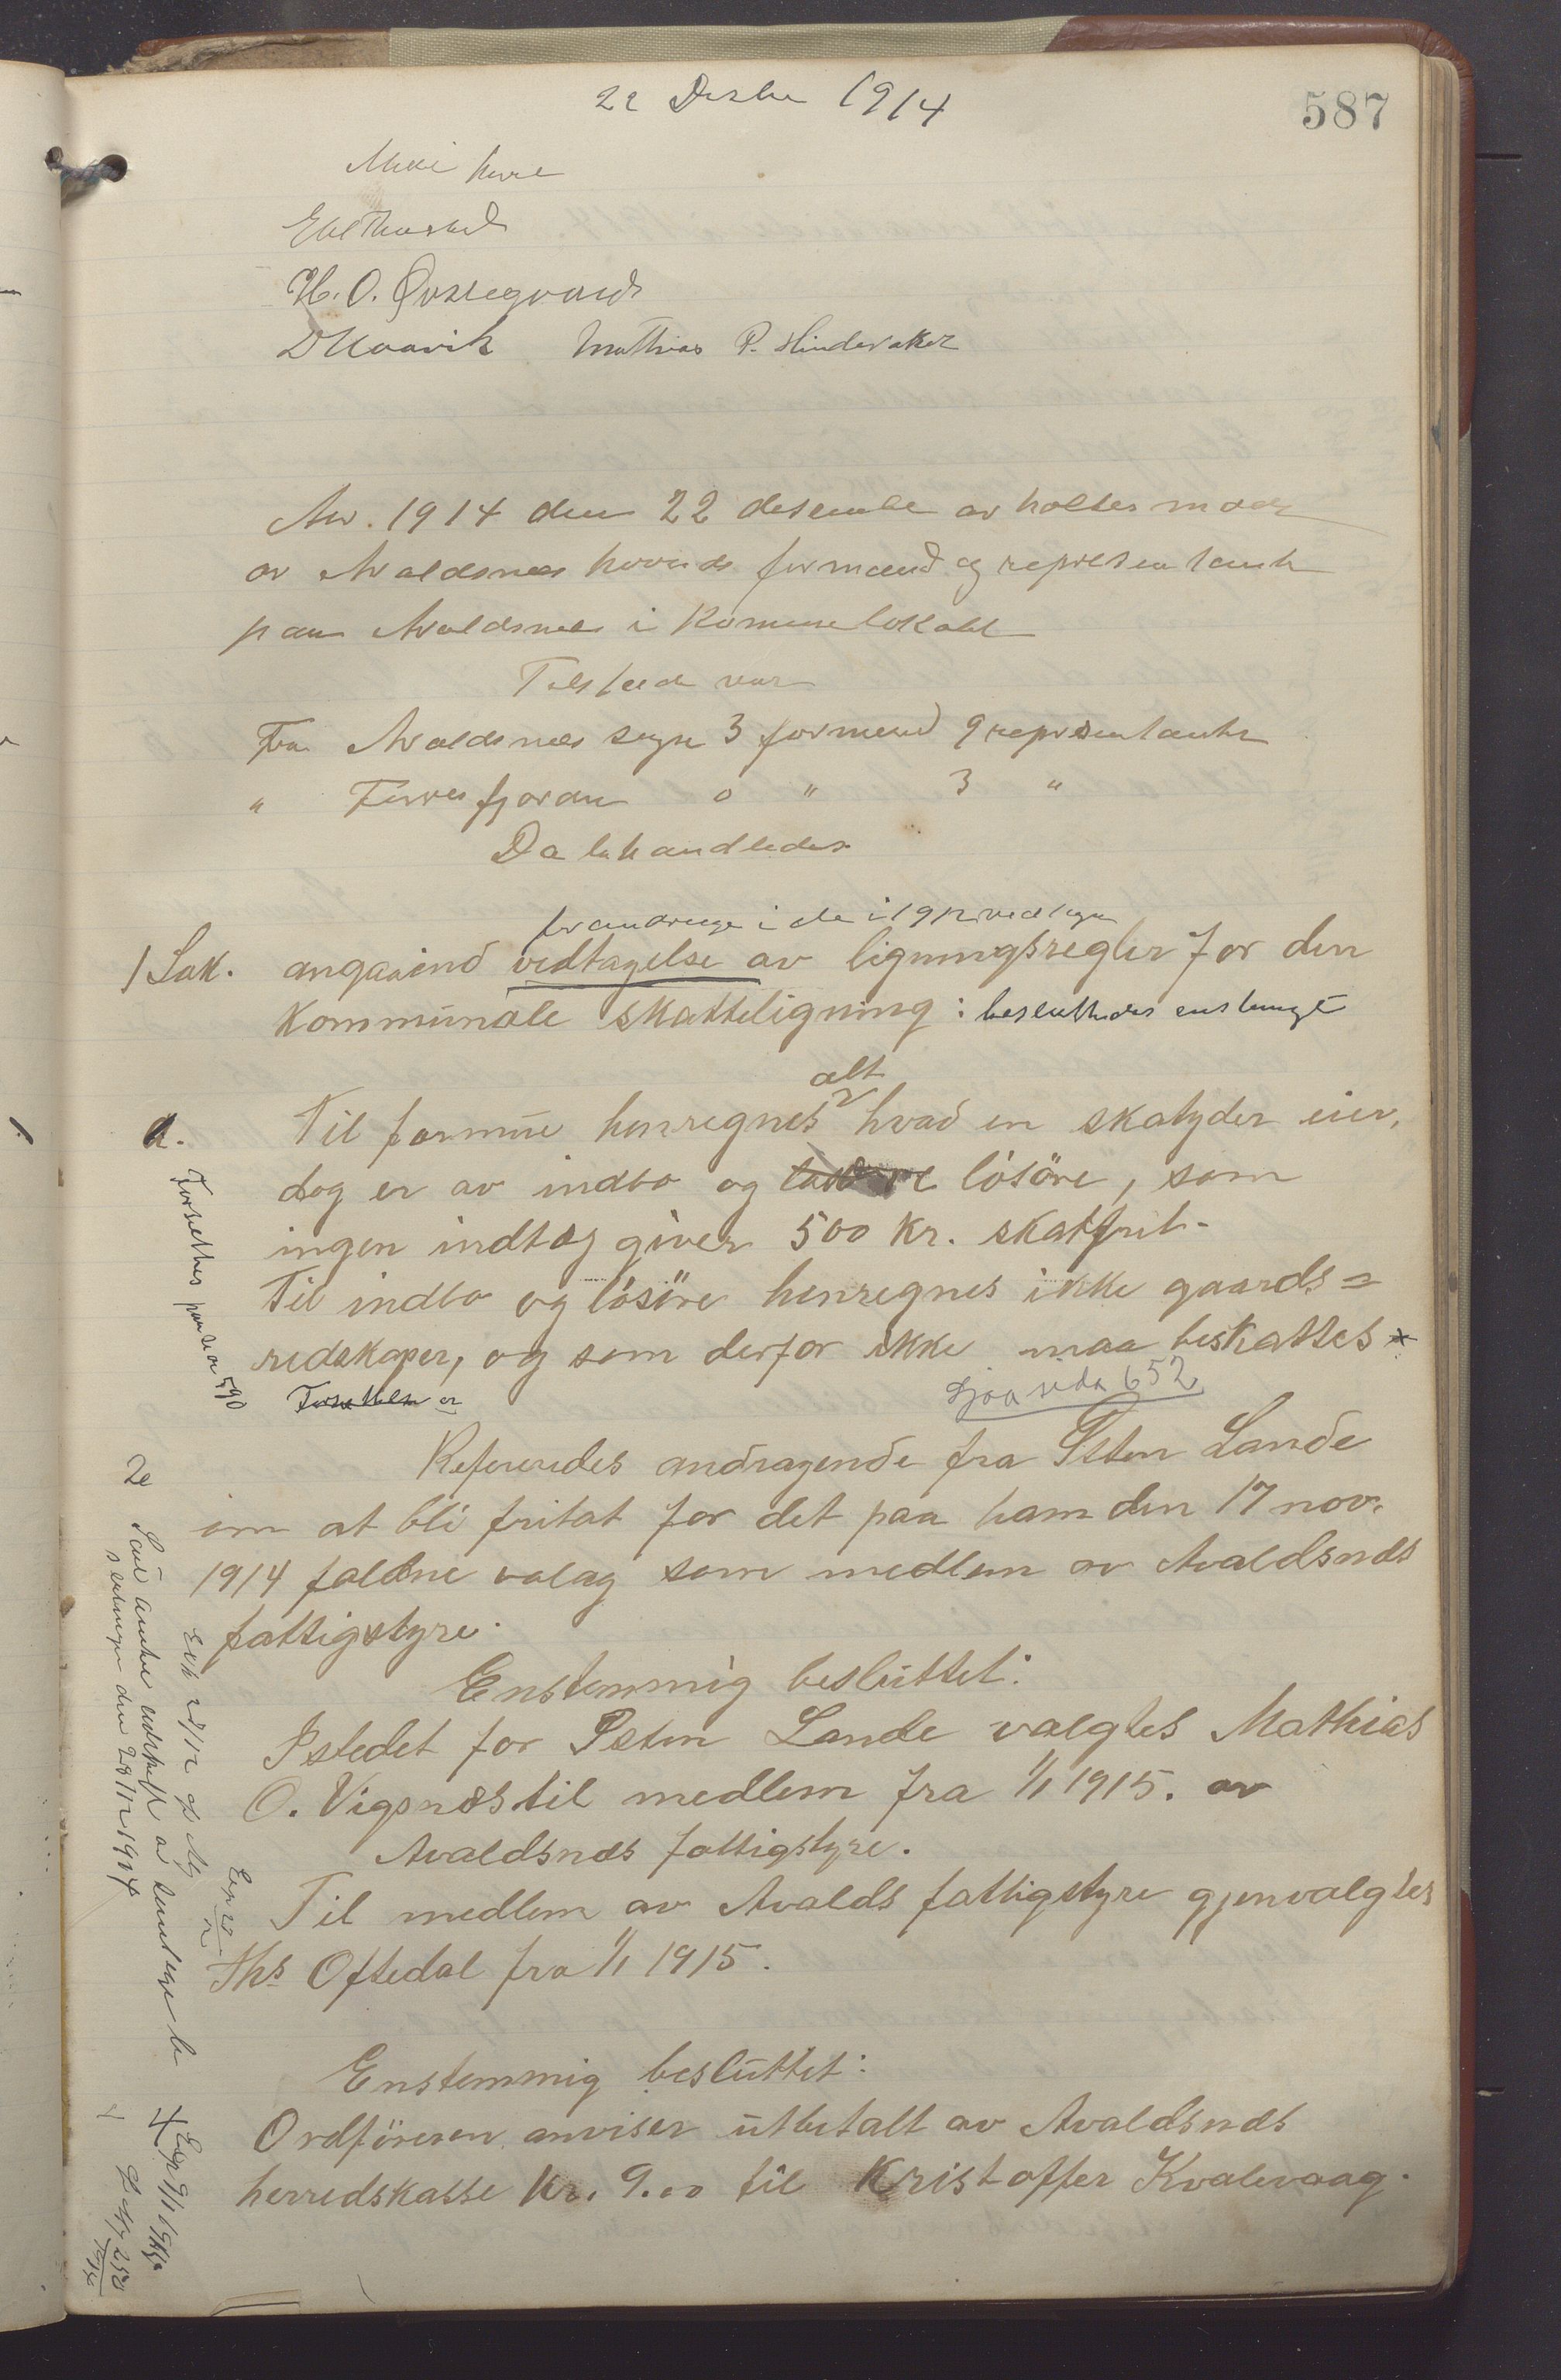 22 Desbr 1914
587
H. O. Qvalegvaards
D Kaavik Mathias P. Hindraker
Aar. 1914 den 22 desember avholtes møde
av Avaldsnes herreds formænd og representanter
paa Avaldsnes i Komunelokalet
Tilstede var
Fra Avaldsnes sogn 3 formænd 9 representanter
" Førresfjorden 0 " 3 "
Da behandledes
forandringe i de i 1912 vedtagne
1 Sak. angaaend vedtagelse av ligningsregler for den
kommunale skatteligning: besluttedes enstemmigt
alt
a. Til formue henregnes hvad en skatyder eier,
dog er av indbo og løsøre, som
ingen indtæg giver 500 kr. skatfrit.
Til indbo og løsøre henregnes ikke gaards=
redskaper, og som derfor ikke maa beskattes *
Forsettes paa side 590
Forsettes
Sjaa sida 652
Refereredes andragende fra Østen Lande
om at bli fritat for det paa ham den 17 nov.
1914 faldne valag som medlem av Avaldsnæs
fattigstyre.
Enstemmig besluttet:
Istedet for Østen Lande valgtes Mathias
O. Vigsnæs til medlem fra 1/1 1915. av
Avaldsnæs fattigstyre.
Til medlem av Avalds fattigstyre gjenvalgtes
Ths Oftedal fra 1/1 1915.
2e Send amtet utskrift av
den 28/12 1914
Enstemmig besluttet:
Ordføreren anviser utbetalt av Avaldsnæs
herredskasse kr. 9.00 til Kristoffer Kvalevaag.